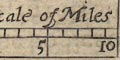 cale of Miles
5 10